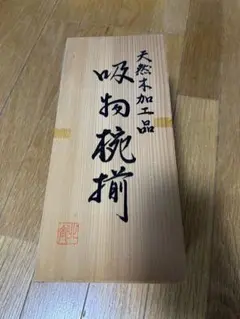 天然木加工品
吸物椀揃